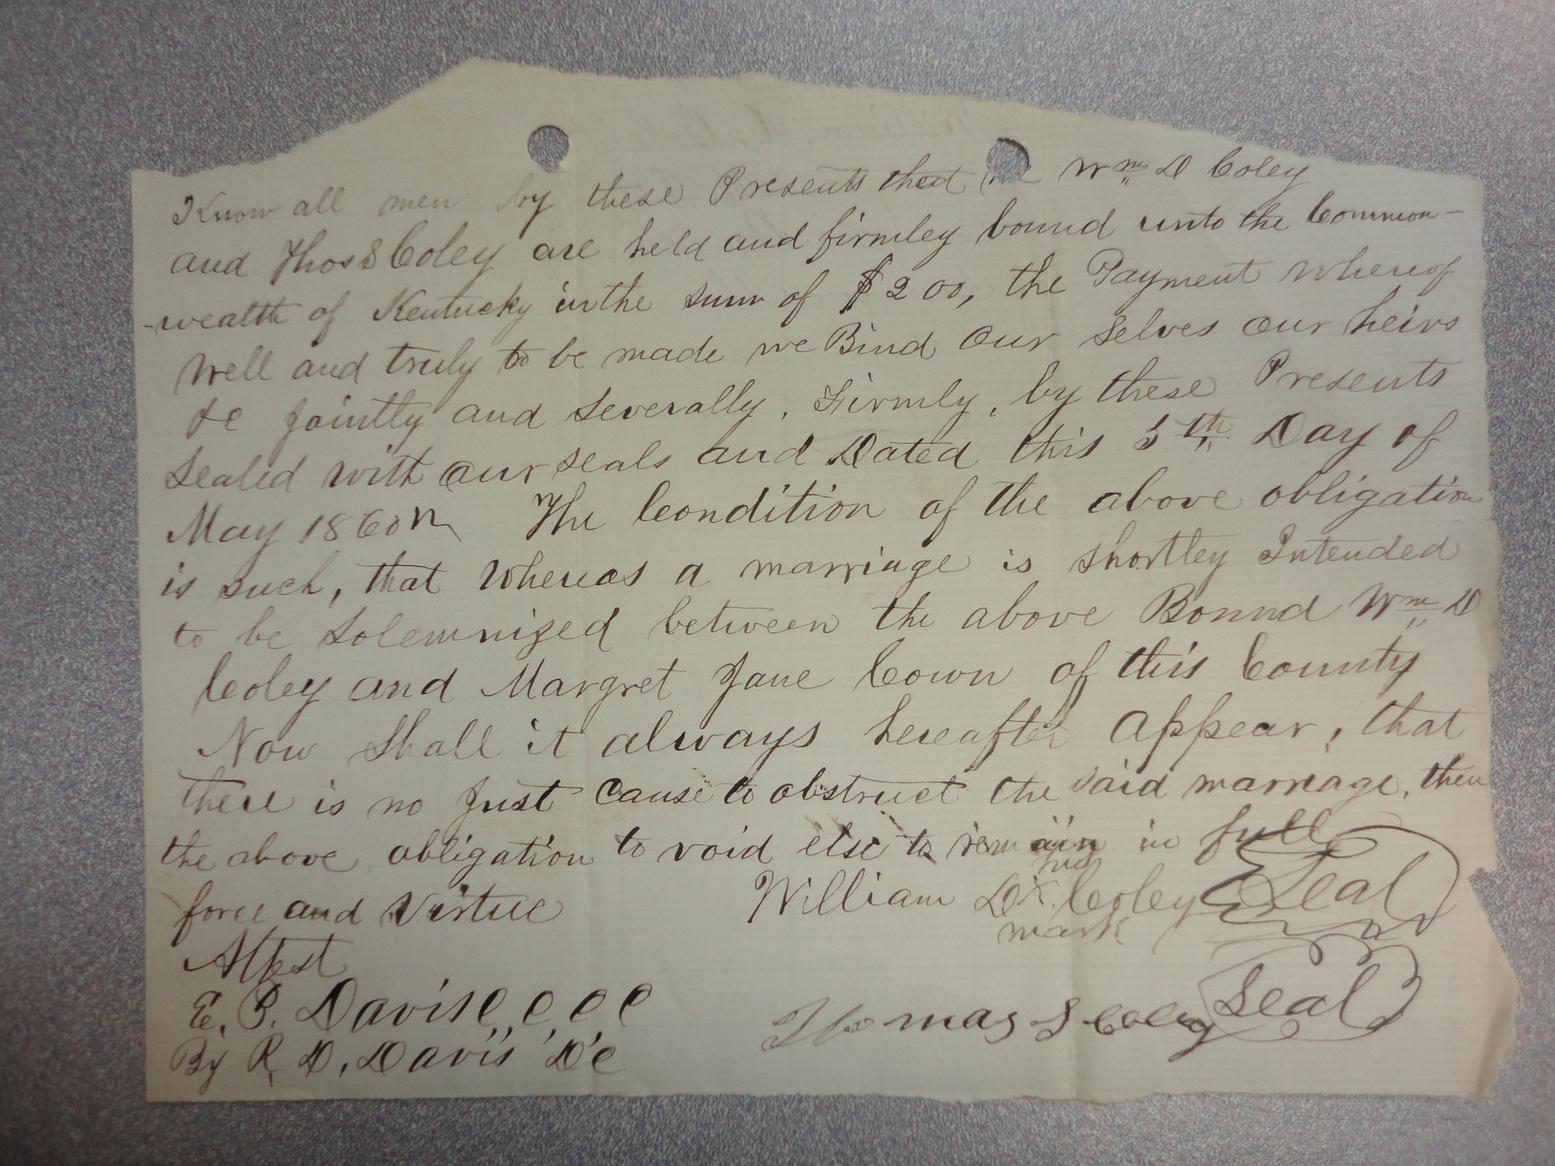 Know all men by these Presents that we Wm D Coley
and Thos S Coley are held and firmley bound unto the Common-
-wealth of Kentucky in the sum of $200, the Payment whereof
Well and truly to be made we Bind our selves our heirs
&c jointly and severally, Firmly, by these Presents
Sealed with our seals and Dated this 5th Day of
May 1860 The Condition of the above obligation
is such, that whereas a marriage is shortley Intended
to be Solemnized between the above Bound Wm D
Coley and Margret Jane Cown of this County
Now Shall it always hereafter appear, that
there is no Just cause to obstruct the said marriage, then
the above obligation to void else to remain in full
force and Virtue
William D his X Coley Seal
mark
Attest
E. P. Davis C C C C
Thomas S Coley Seal
By R. D. Davis D C